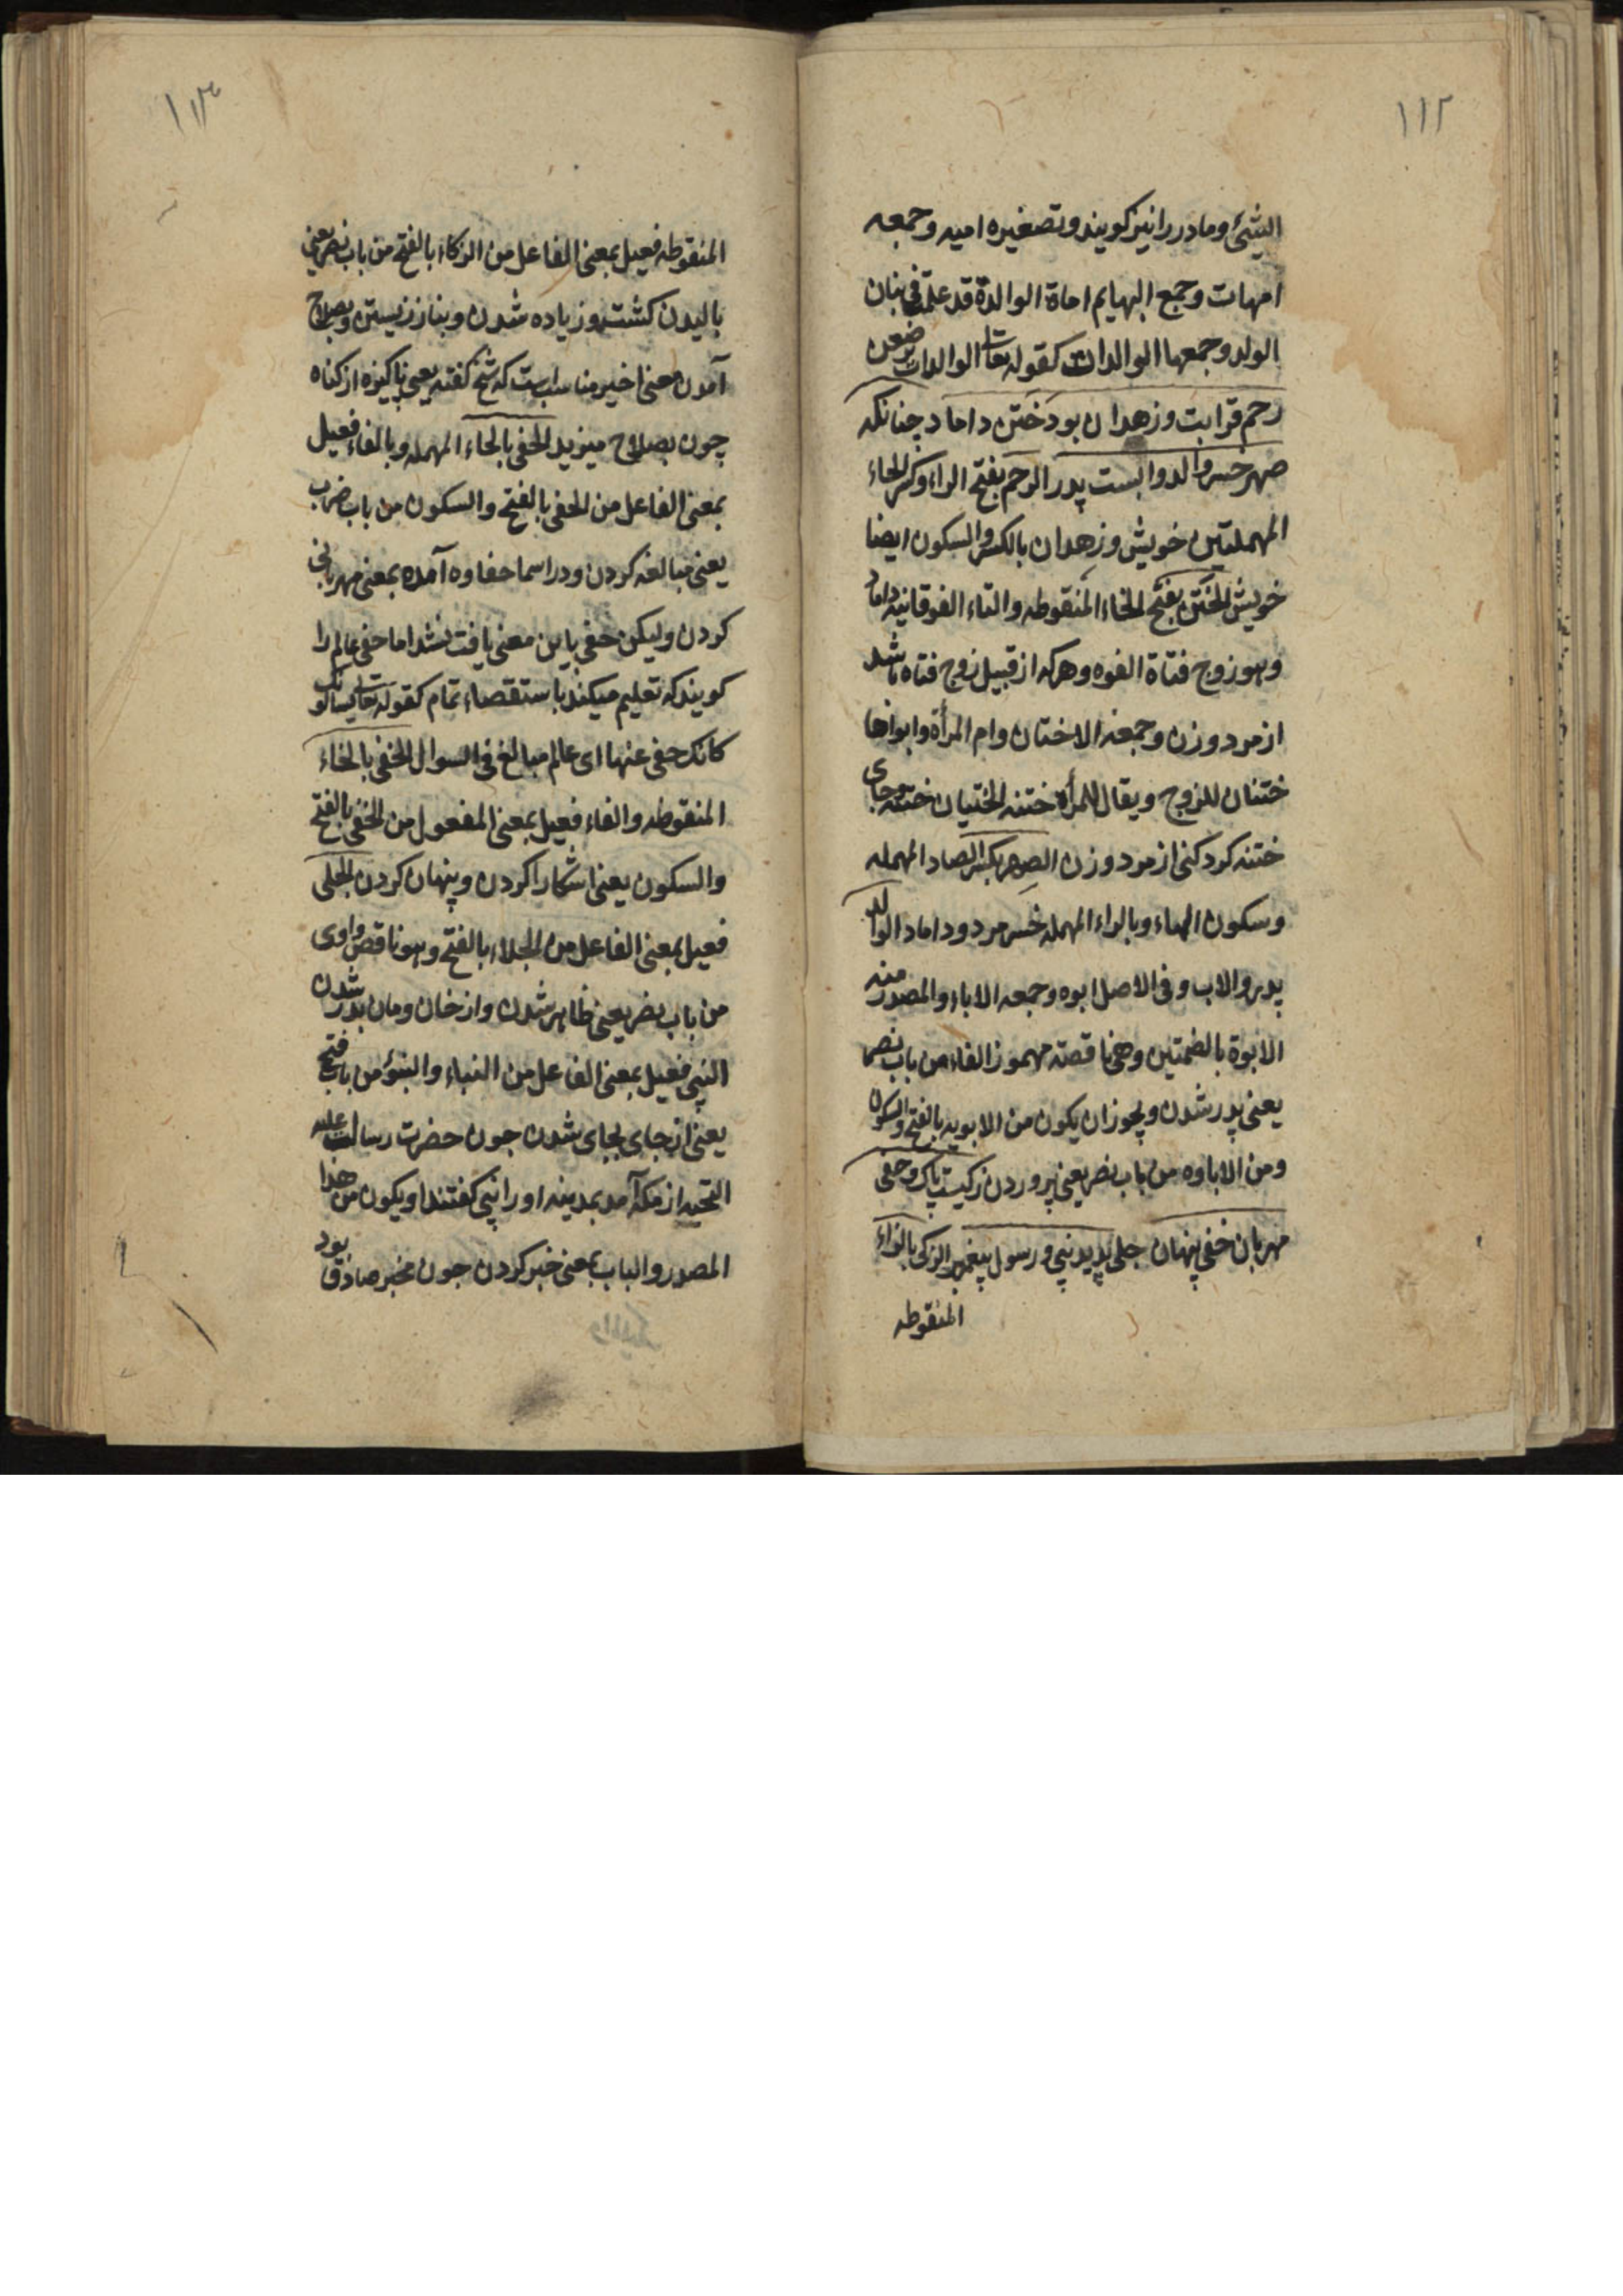 ۱۱۲
الشیٔ و مادر را نیز کویند و تصغیره امیه و جمعه
امهات و جمع البهایم امات الوالدة قد علمت فی بنان
الولد و جمعها الوالدات کقوله تعالی الوالدات یرضعن
رحم قرابت و زهدان بود ختن داماد چنانکه
صهر خسر والد و ابست پدر الرحم بفتح الراء و کسر الحاء
المهملتین خویش و زهدان بالکسر و السکون ایضا
خویش الختن بفتح الخاء المنقوطه و التاء الفوقانیه داماد
و هو زوج فتاة القوه و هرکه از قبیل زوج فتاه باشد
از مرد و زن و جمعه الاختان و ام المرأة و ابواها
ختنان للزوج و یقال للمرأة ختنه الختیان ختنه و جای
ختنه کرد کنی از مرد و زن الصهر بکسر الصاد المهمله
و سکون الهاء و بالراء المهمله خسر مرد و داماد الوالد
پدر و الاب و فی الاصل ابوه و جمعه الاباء و المصدر منه
الابوة بالضمتین و هی ناقصة مهموز الفاء من باب نصر
یعنی پدر شدن و یجوز ان یکون من الابویه بالفتح و السکون
و من الاباوه من باب نصر یعنی پروردن زکیست پاک و حفی
مهربان خفی پنهان جلی پدید نبی و رسول پیغمبر الزکی بالزاء
المنقوطه
۱۱۳
المنقوطه فعیل بمعنی الفاعل من الزکاء بالفتح من باب نصر یعنی
بالیدن کشت و زیاده شدن و بناز زیستن و بصلاح
آمدن معنی اخیر مناسبست که شخ کفته یعنی پاکیزه از کناه
چون بصلاح میزید الحفی بالحاء المهمله و بالفاء فعیل
بمعنی الفاعل من الحفی بالفتح و السکون من باب ضرب
یعنی مبالغه کردن و در اسما حفاوه آمده بمعنی مهربانی
کردن و لیکن حفی باین معنی یافت نشد اما حفی عالم را
کویند که تعلیم میکند باستقصاء تمام کقوله تعالی یسالونک
کانک حفی عنها ای عالم مبالغ فی السوال الخفی بالخاء
المنقوطه و الفاء فعیل بمعنی المفعول من الخفی بالفتح
و السکون یعنی اشکارا کردن و پنهان کردن الجلی
فعیل بمعنی الفاعل من الجلاء بالفتح و هو ناقص واوی
من باب نصر یعنی ظاهر شدن و از خان و مان بدر شدن
النبی فعیل بمعنی الفاعل من النباء و النبؤ من باب فتح
یعنی از جای بجای شدن جون حضرت رسالت علیه
التحیه از مکه آمد بمدینه او را نبی کفتند او یکون من هذا
المصدر و الباب بمعنی خبر کردن جون مخبر صادق بود